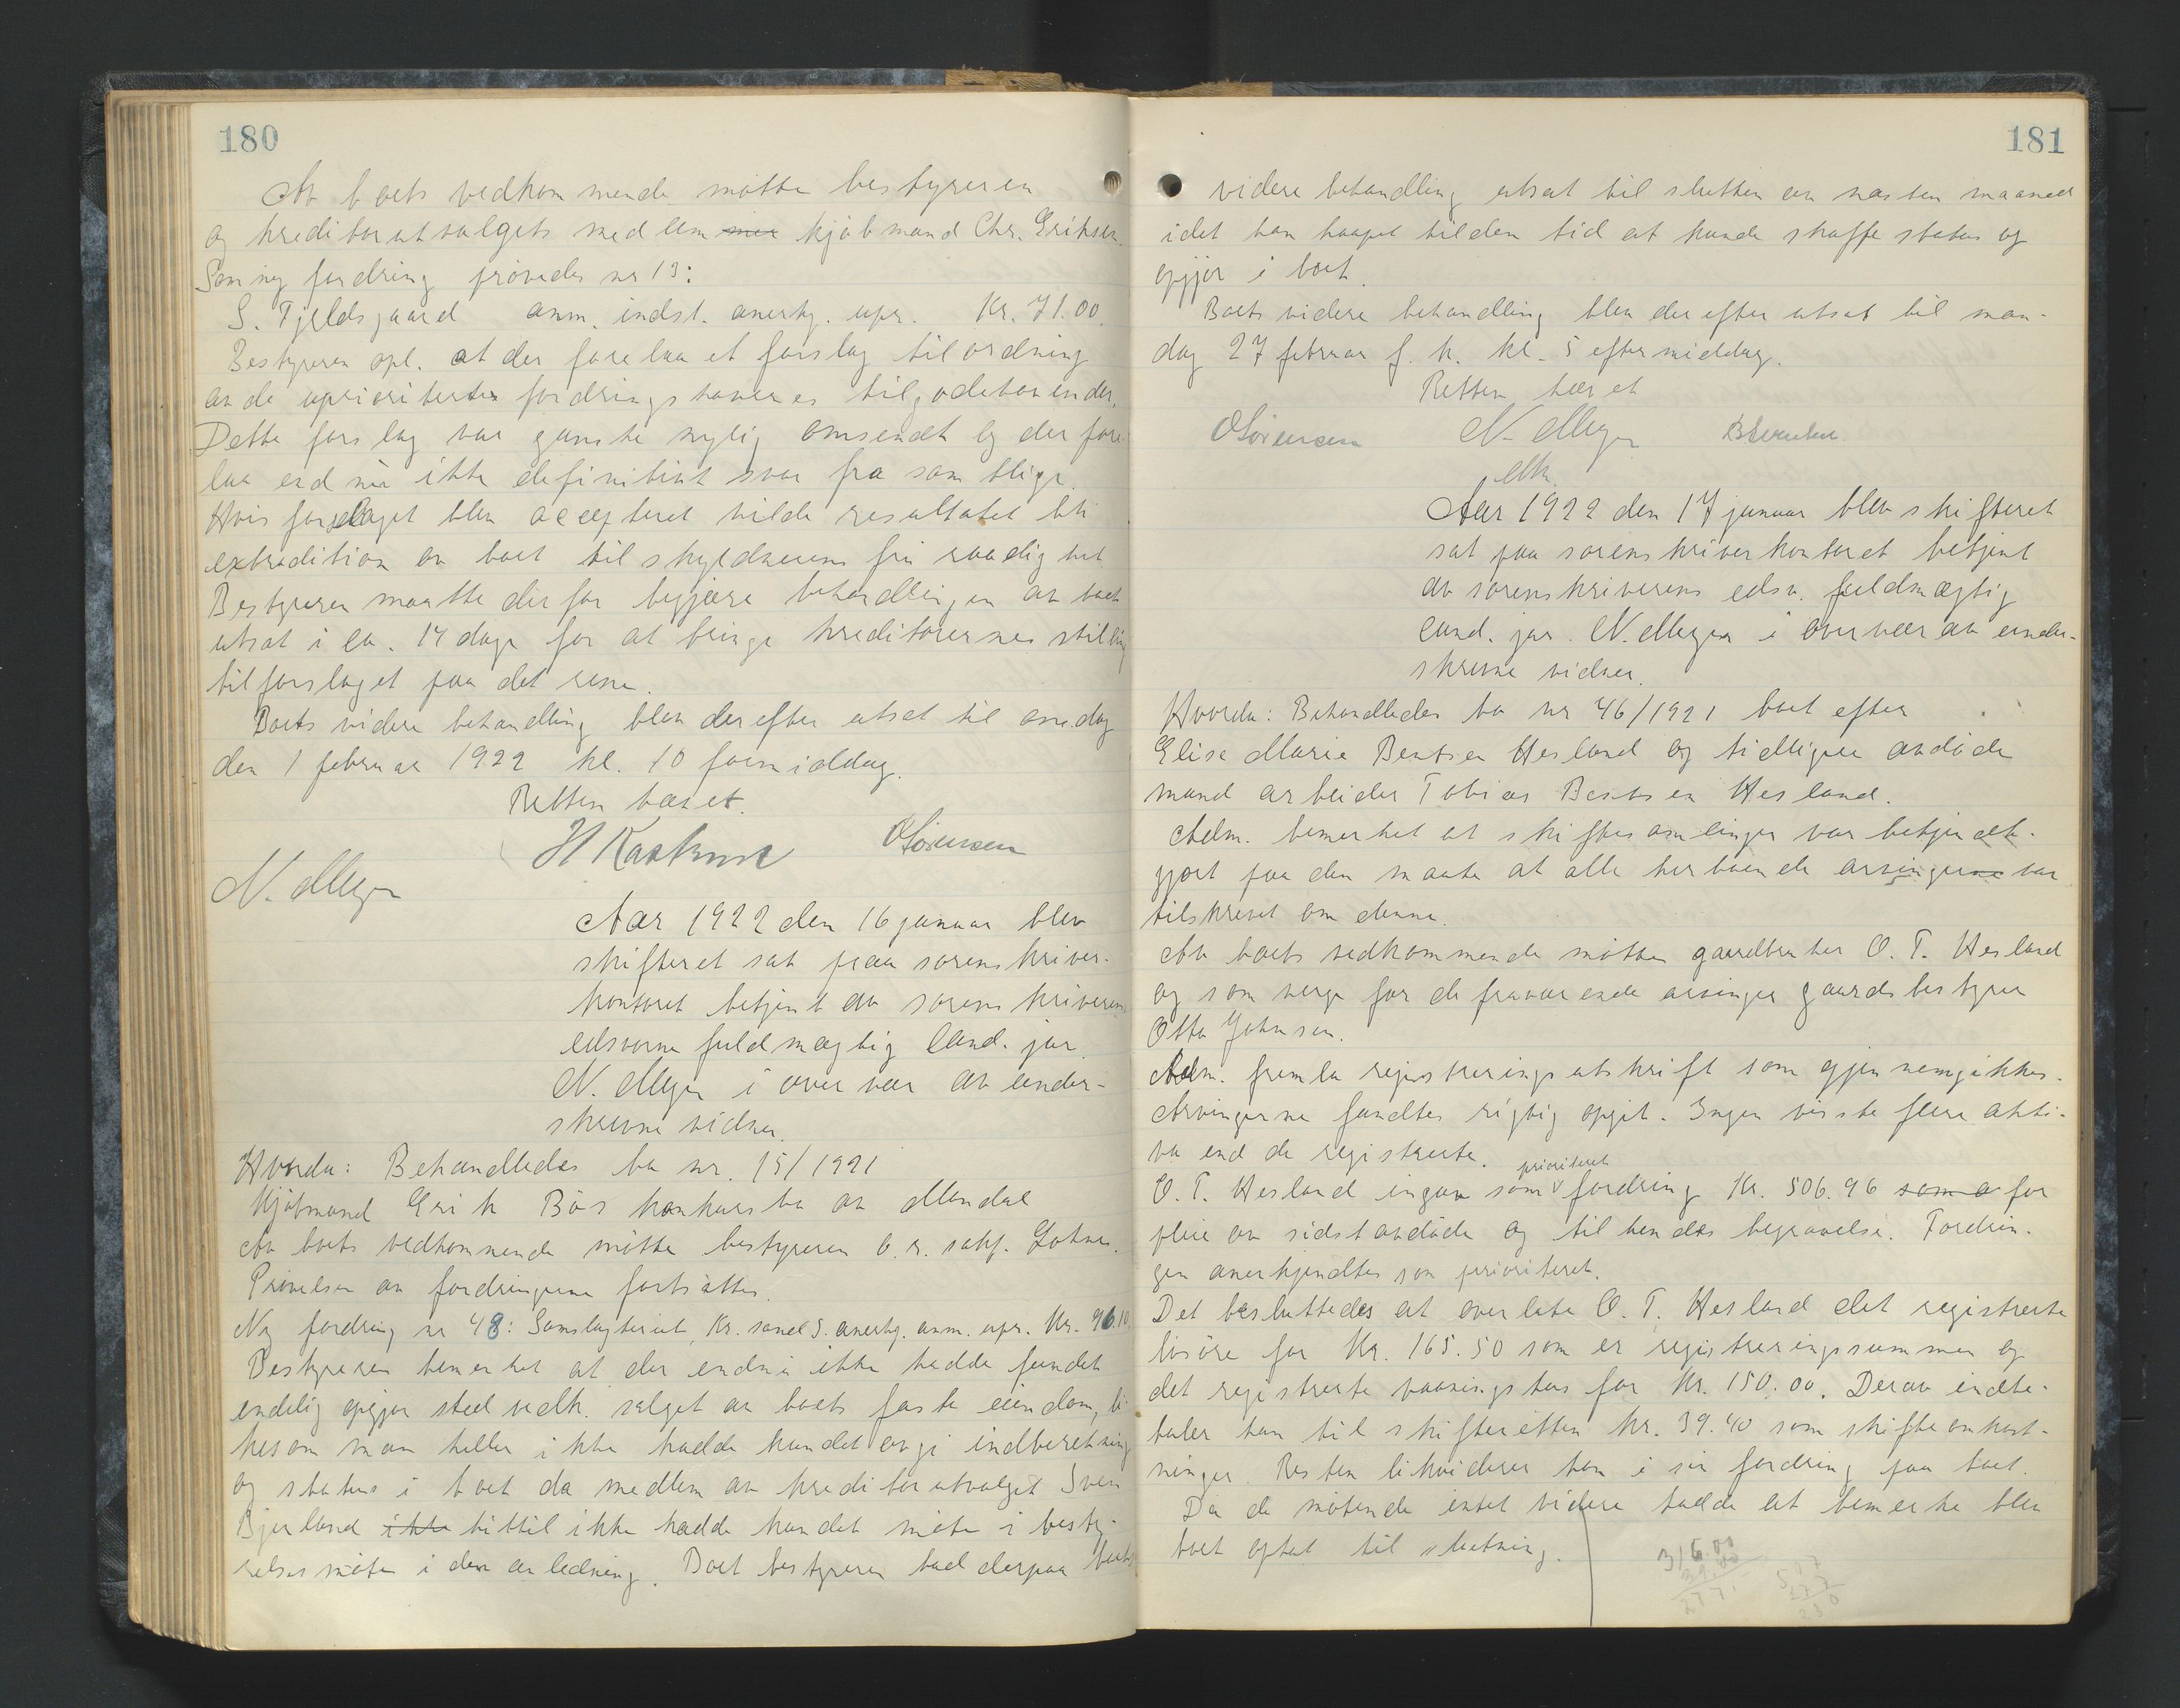 180
Av boets vedkommende møtte bestyreren
og kreditorutvalgets medlem mer kjøbmand Chr. Eriksen.
Som ny fordring prøvedes nr 13:
S. Tjeldsgaard anm. indst. anerkj. upr. Kr. 71.00.
Bestyreren opl. at der forelaa et forslag til ordning
av de uprioriterte fordringshaveres tilgodehavender.
Dette forslag var ganske nylig omsendt og der fore-
laa endnu ikke definitivt svar fra samtlige.
Hvis forslaget blev accepteret vilde resultatet bli
extradition av boet til skyldnerens fri raadighet
Bestyreren maatte derfor begjære behandlingen av boet
utsat i ca. 14 dage for at bringe kreditorernes stilling
til forslaget paa det rene.
Boets videre behandling blev derefter utsat til onsdag
den 1 februar 1922 kl. 10 formiddag.
Retten hævet.
H Kaastrup OSørensen
N. Meyer
Aar 1922 den 16 januar blev
skifteret sat paa sorenskriver-
kontoret betjent av sorenskriverens
edsvorne fuldmægtig cand. jur.
N. Meyer i overvær av under-
skrevne vidner.
Hvorda: Behandledes bo nr. 15/1921
Kjøbmand Erik Bøs konkursbo av Mandal
Av boets vedkommende møtte bestyreren o.r. sakf. Lohne.
Prøvelsen av fordringerne fortsattes.
Ny fordring nr 48: Samslagteriet, Kr. sand S. anerkj. anm. upr. Kr. 96.10.
Bestyreren bemerket at der endnu ikke hadde fundet
endelig opgjør sted vedk. salget av boets faste eiendom, li-
kesom man heller ikke hadde kundet avgi indberetning
og status i boet da medlem av kreditorutvalget Sven
Bjerland ikke hittil ikke hadde kundet møte i besty-
relsesmøte i den anledning. Boet bestyreren bad derpaa boets
181
videre behandling utsat til slutten av næsten maaned
idet han haapet til den tid at kunde skaffe status og
opgjør i boet.
Boets videre behandling blev derefter utsat til man-
dag 27 februar f. k. kl. 5 eftermiddag.
Retten hævet
OSørensen N. Meyer
Aar 1922 den 17 januar blev skifteret
sat paa sorenskriverkontoret betjent
av sorenskriverens edsv. fuldmægtig
cand. jur. N. Meyer i overvær av under-
skrevne vidner.
Hvorda: Behandledes bo nr 46/1921 boet efter
Elise Marie Bentsen Hesland og tidligere avdøde
mand arbeider Tobias Bentsen Hesland.
Adm. bemerket at skiftesamlingen var bekjendt-
gjort paa den maate at alle herboende arvingerne var
tilskrevet om denne.
Av boets vedkommende møtte gaardbruker O. T. Hesland
og som verge for de fraværende arvinger gaardsbestyrer
Otto Johnsen.
Adm. fremla registreringsutskrift som gjennemgikkes.
Arvingerne fandtes rigtig opgit. Ingen visste flere akti-
va end de registrerte.
O. T. Hesland ingav som prioriteret fordring Kr. 506.96 som a for
pleie av sidstavdøde og til hendes begravelse. Fordrin-
gen anerkjendtes som prioriteret.
Det besluttedes at overlate O. T. Hesland det registrerte
løsøre for Kr. 165.50 som er registreringssummen og
det registrerte vaaningshus for Kr. 150.00. Derav indbe-
taler han til skifteretten kr. 39.40 som skifteomkost-
ninger. Resten likviderer han i sin fordring paa boet.
Da de møtende intet videre hadde at bemerke blev
boet optat til slutning.
316.00
39.00
277.
507
277
230